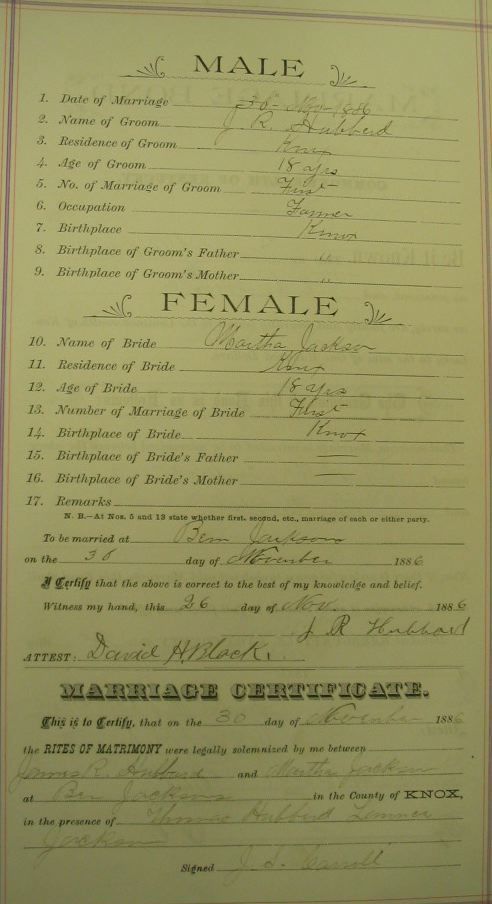 MALE
1. Date of Marriage 30 - Nov - 1886
2. Name of Groom J. R. Hubberd
3. Residence of Groom Knox
4. Age of Groom 18 yrs
5. No. of Marriage of Groom First
6. Occupation Farmer
7. Birthplace Knox
8. Birthplace of Groom's Father "
9. Birthplace of Groom's Mother "
FEMALE
10. Name of Bride Martha Jackson
11. Residence of Bride Knox
12. Age of Bride 18 yrs
13. Number of Marriage of Bride First
14. Birthplace of Bride Knox
15. Birthplace of Bride's Father —
16. Birthplace of Bride's Mother —
17. Remarks
N. B.—At Nos. 5 and 13 state whether first, second, etc., marriage of each or either party.
To be married at Ben Jacksons
on the 30 day of November 1886
I Certify that the above is correct to the best of my knowledge and belief.
Witness my hand, this 26 day of Nov. 1886
J R Hubbard
ATTEST: David H Black
MARRIAGE CERTIFICATE.
This is to Certify, that on the 30 day of November 1886
the RITES OF MATRIMONY were legally solemnized by me between
James R. Hubbard and Martha Jackson
at Ben Jacksons in the County of KNOX,
in the presence of Thomas Hubbard
Jackson
Signed J. S.